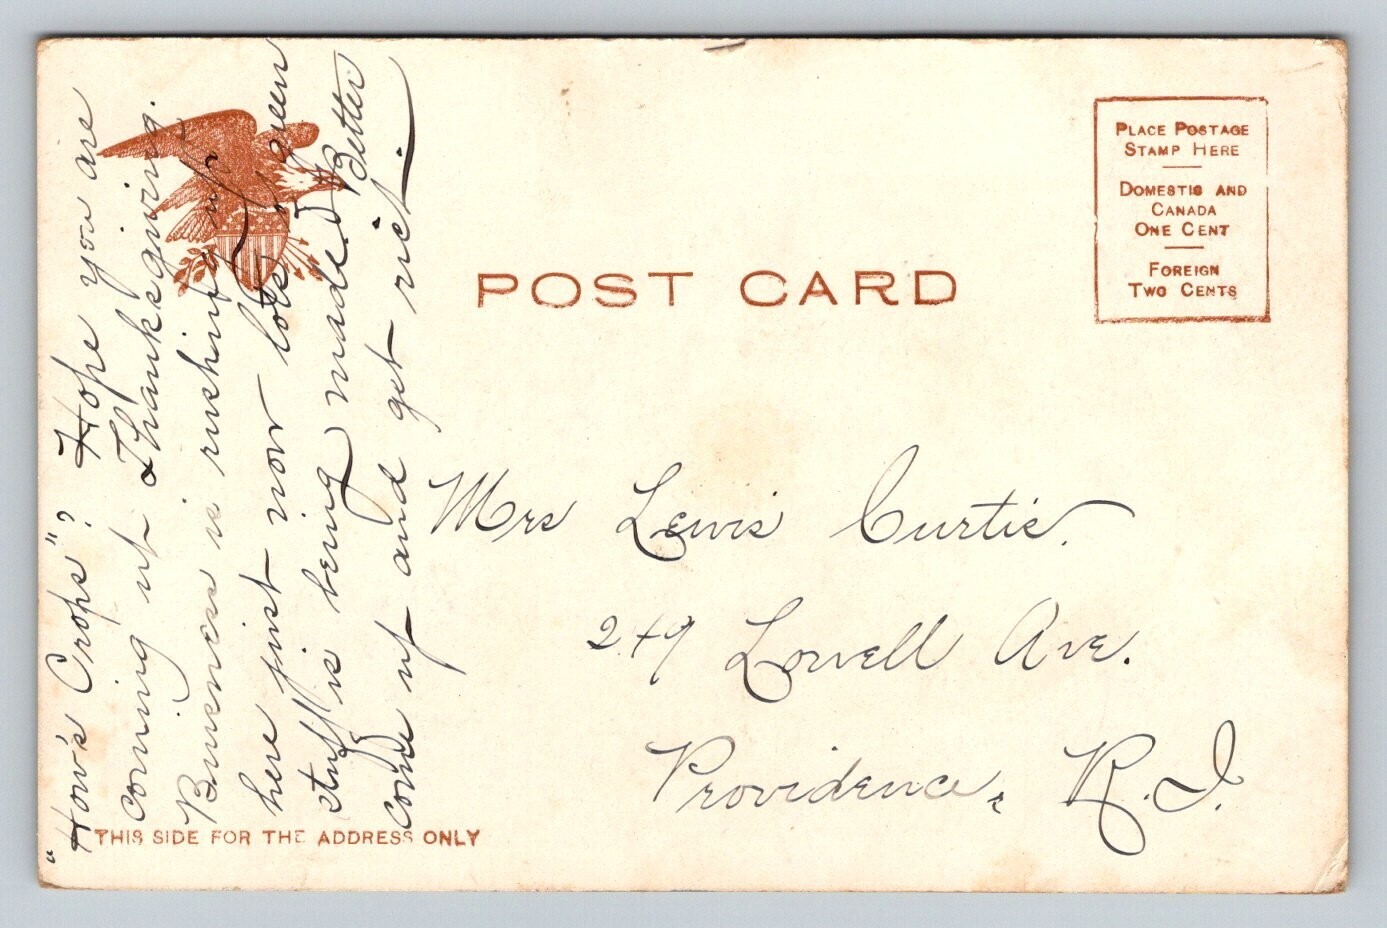 "How's Crops"? Hope you are
coming up Thanksgiving.
Buisness is rushing up
here just now lots of green
stuff is being made. Better
come up and get rich.
POST CARD
PLACE POSTAGE
STAMP HERE
DOMESTIC AND
CANADA
ONE CENT
FOREIGN
TWO CENTS
Mrs Lewis Curtis.
249 Lowell Ave.
Providence, R.I.
THIS SIDE FOR THE ADDRESS ONLY